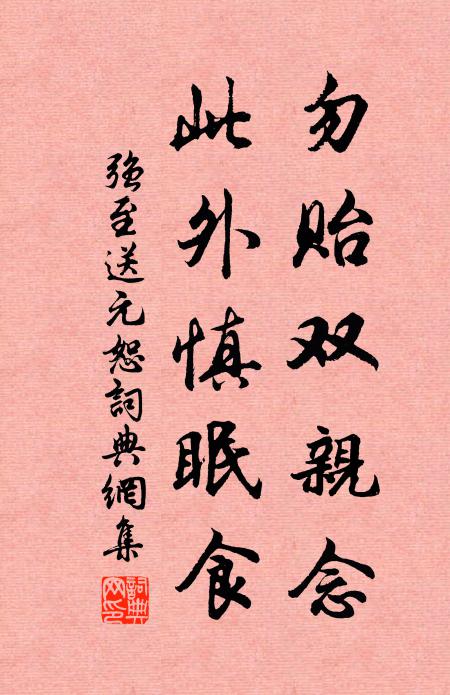 勿贻双親念
此外慎眠食
强至送元恕詞典網集
詞典網印